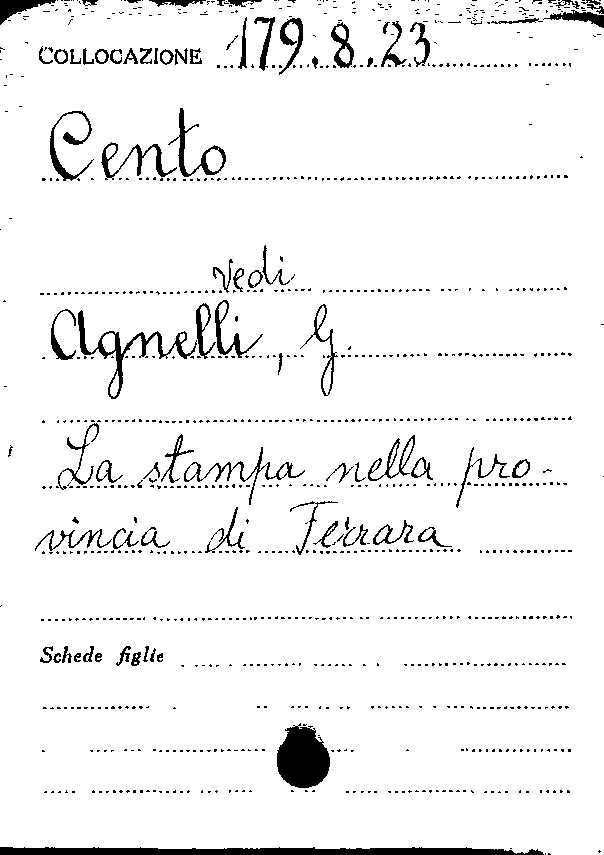 COLLOCAZIONE 179.8.23
Cento
vedi
Agnelli, G.
La stampa nella pro-
vincia di Ferrara
Schede figlie